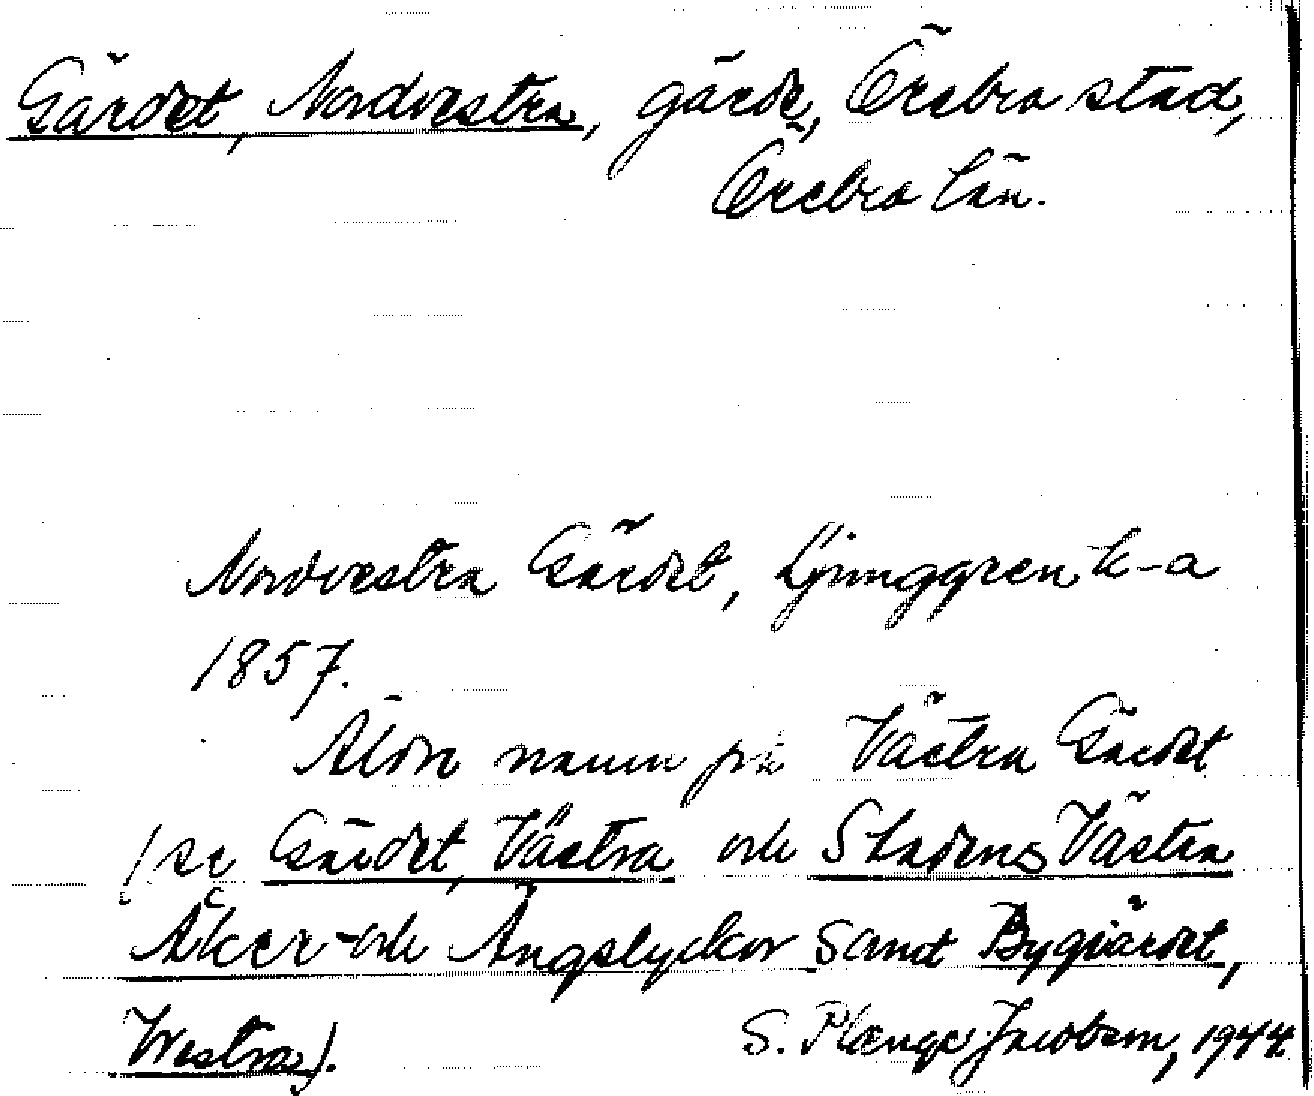 Gärdet, Nordvestra, gärde, Örebro stad,
Örebro län.
Nordvestra Gärdet, Ljunggren k-a
1857.
Äldre namn på Västra Gärdet
(se Gärdet, Västra och Stadens Västra
Åker- och Ängslyckor samt Bygärdet,
Westra).
S. Plænge Jacobson, 1944.